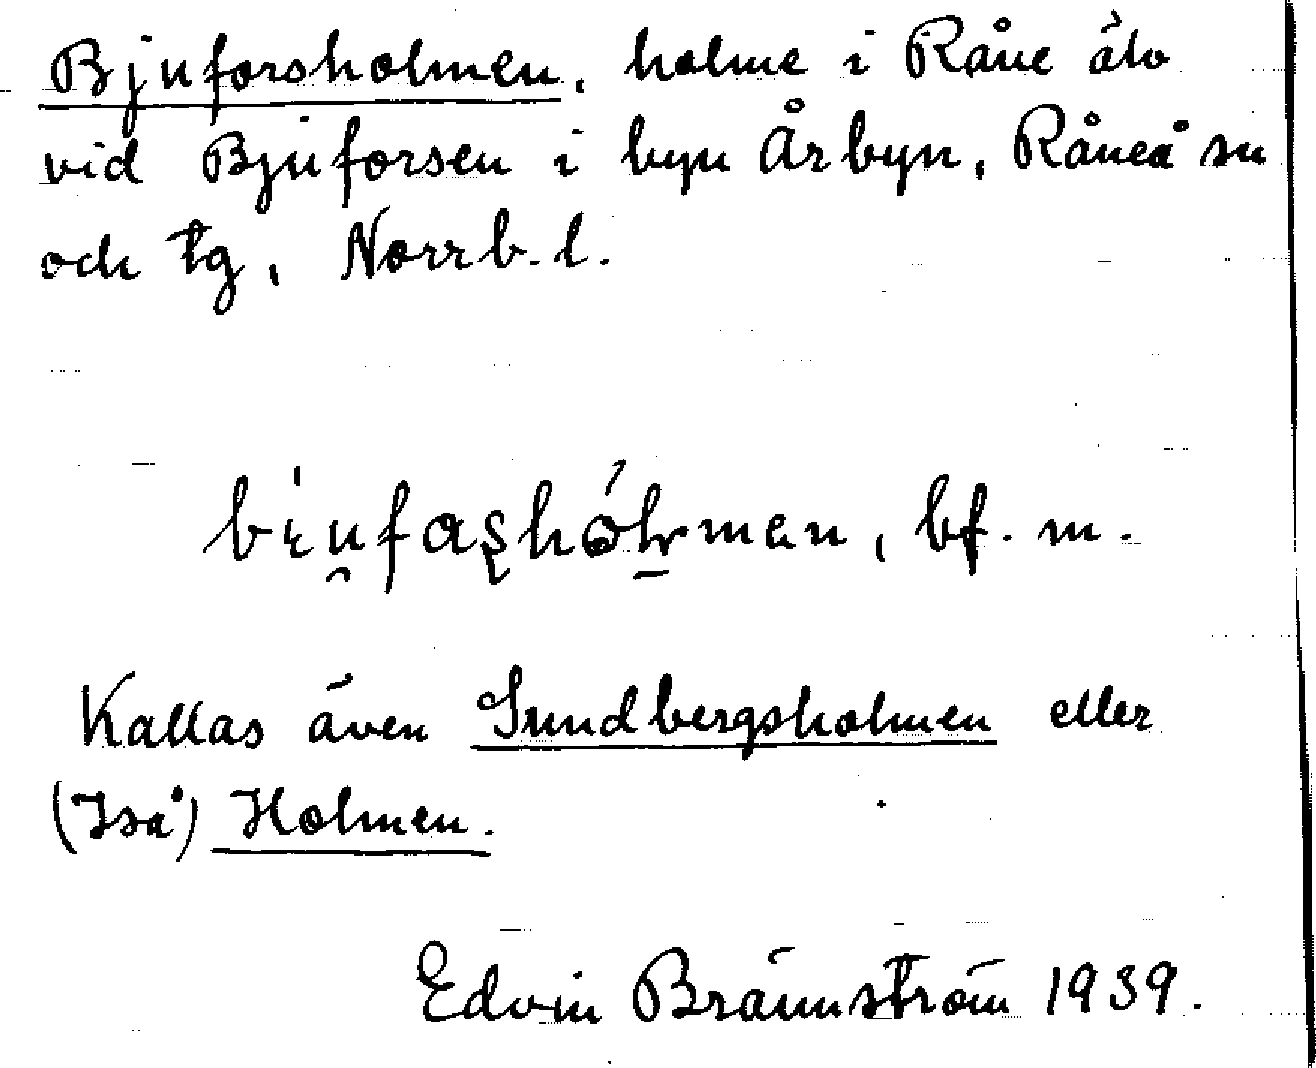 Bjuforsholmen, holme i Råne älv
vid Bjuforsen i byn Årbyn, Råneå sn
och tg, Norrb. l.
bi̯u̯faʂhólmen, bf. m.
Kallas även Sundbergsholmen eller
(Iså) Holmen.
Edvin Brännström 1939.